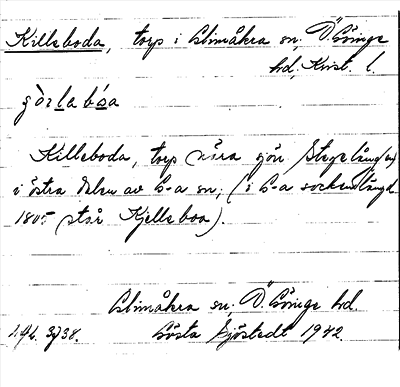 Killeboda, torp i Glimåkra sn, Ö. Göinge
hd, Krist. l.
Killeboda, torp nära sjön
i östra delen av G-a sn, (i G-a sockenlängd
1805 står Kjelleboa).
Glimåkra sn, Ö. Göinge hd.
Gösta Sjöstedt 1942.